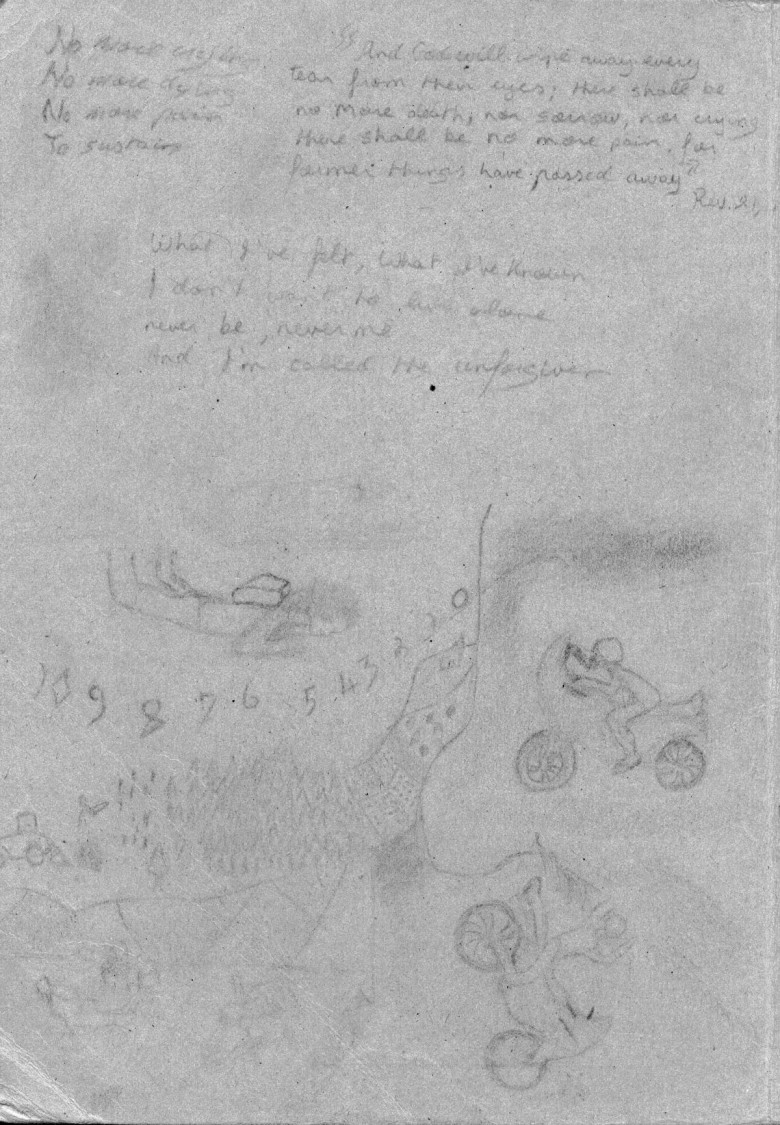 No more crying
No more dying
No more pain
To sustain
"And God will wipe away every
tear from their eyes; there shall be
no more death, nor sorrow, nor crying
there shall be no more pain, for
former things have passed away"
Rev. 21,
What I've felt, what I've known
I don't want to live alone
never be, never me
And I'm called the unforgiven
10 9 8 7 6 5 4 3 2 1 0